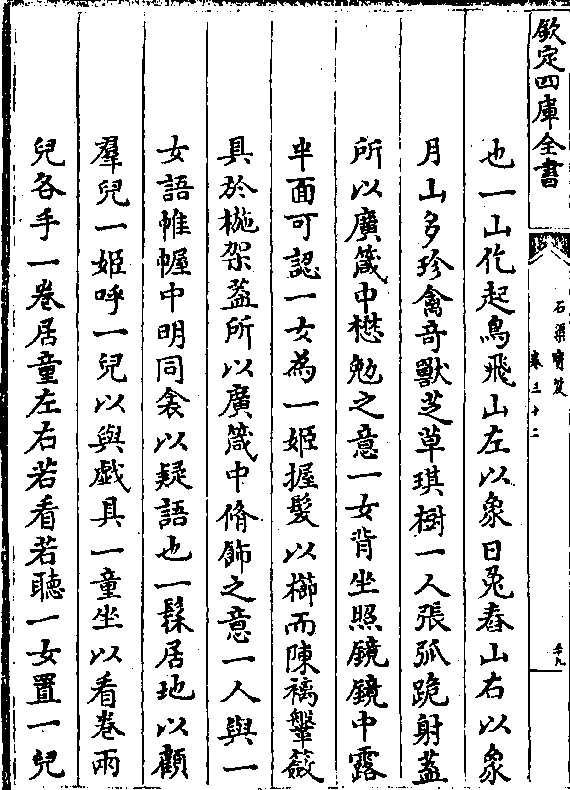 欽定四庫全書
石渠寶笈
卷三十二
也一山仡起鳥飛山左以象日兔舂山右以象
月山多珍禽奇獸芝草琪樹一人張弧跪射蓋
所以廣箴中懋勉之意一女背坐照鏡鏡中露
半面可認一女為一姬握髮以櫛而陳褵鞶簽
具於椸架蓋所以廣箴中脩飾之意一人與一
女語帷幄中明同衾以疑語也一鬖居地以顧
羣兒一姬呼一兒以與戲具一童坐以看卷兩
兒各手一卷居童左右若看若聽一女置一兒